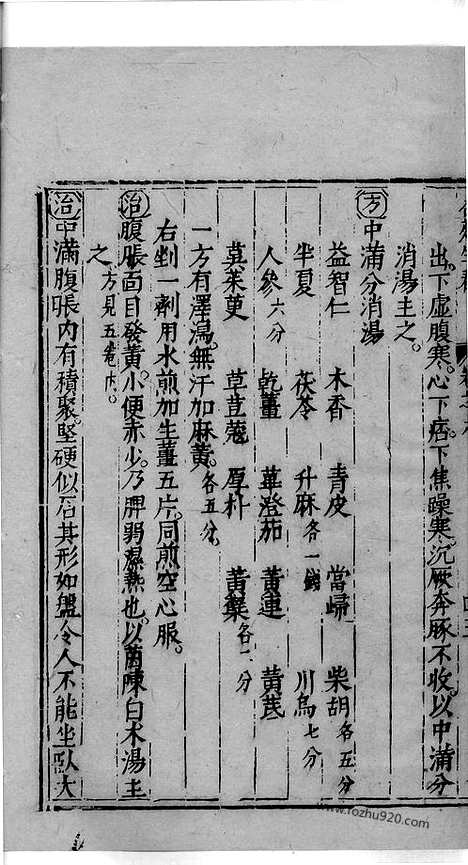 出下虛腹寒。心下痞。下焦躁寒。沉厥奔豚不收。以中滿分
消湯主之。
方中滿分消湯
益智仁 木香 青皮 當歸 柴胡各五分
半夏 茯苓 升麻各一錢 川烏七分
人參六分 乾薑 蓽澄茄 黃連 黃芪
吳茱萸 草荳蔻 厚朴 黃蘗各二分
一方有澤瀉。無汗加麻黃。各五分。
右剉一劑用水煎加生薑五片。同煎空心服。
治腹脹面目發黃。小便赤少。乃脾弱濕熱也。以茵陳白朮湯主
之。方見五
治中滿腹脹。內有積聚。堅硬似石。其形如盤。令人不能坐臥。大
www.fozhu920.com